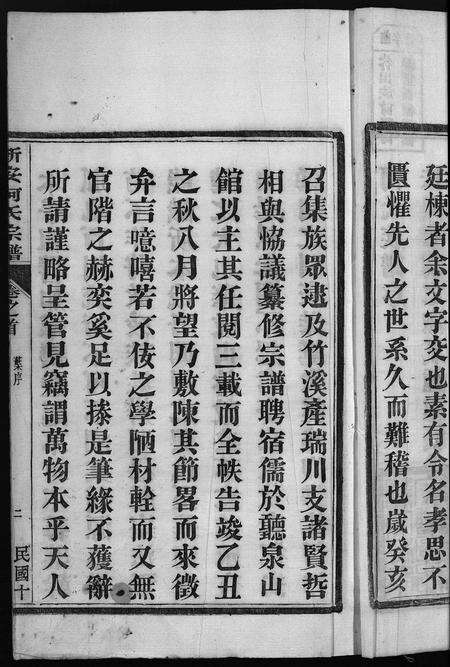 廷棟者余文字交也素有令名孝思不
匱懼先人之世系久而難稽也歲癸亥
召集族眾逮及竹溪產瑞川支諸賢哲
相與恊議纂修宗譜聘宿儒於聽泉山
館以主其任閱三載而全帙告竣乙丑
之秋八月將望乃敷陳其節畧而來徵
弁言噫嘻若不佞之學陋材輇而又無
官階之赫奕奚足以搽是筆緣不獲辭
所請謹略呈管見竊謂萬物本乎天人
新安柯氏宗譜
卷之首
葉序
二
民國十